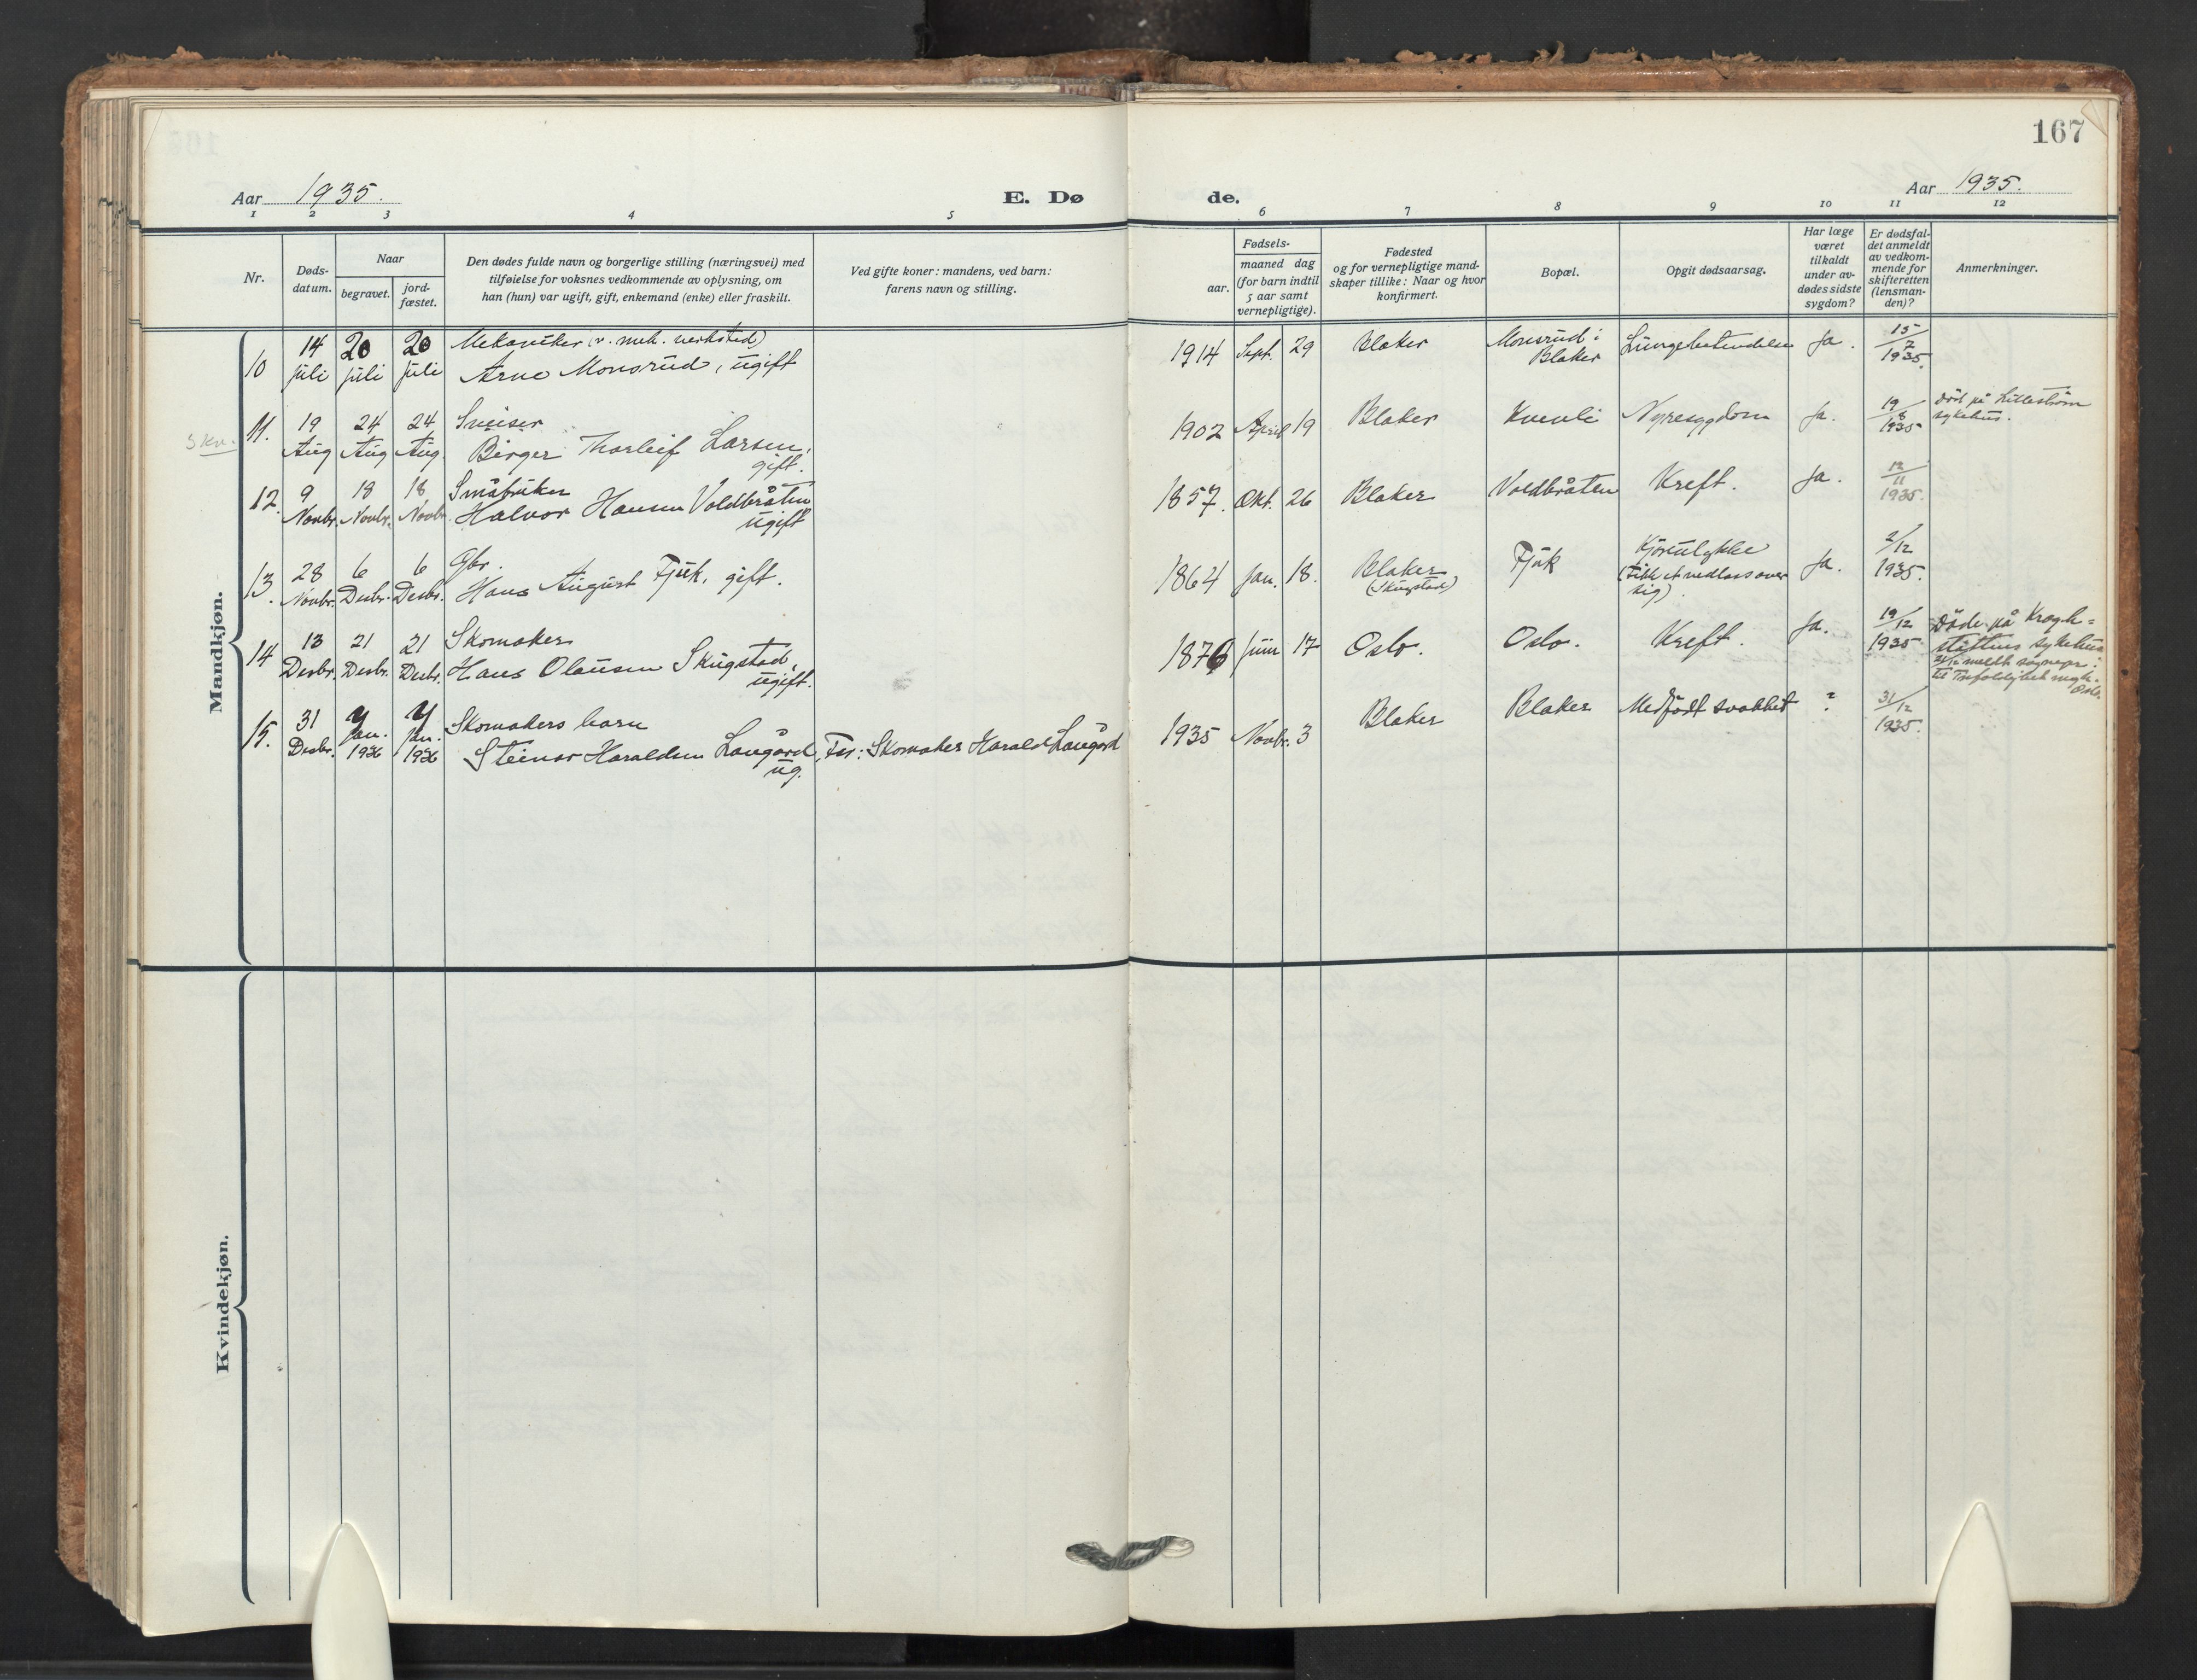 167
Aar 1935.
E. Dø
de.
Aar 1935.
1 2 3 4 5 6 7 8 9 10 11 12
Nr.
Døds-
datum.
Naar
begravet.
jord-
fæstet.
Den dødes fulde navn og borgerlige stilling (næringsvei) med
tilføielse for voksnes vedkommende av oplysning, om
han (hun) var ugift, gift, enkemand (enke) eller fraskilt.
Ved gifte koner: mandens, ved barn:
farens navn og stilling.
Fødsels-
aar.
maaned dag
(for barn indtil
5 aar samt
vernepligtige).
Fødested
og for vernepligtige mand-
skaper tillike: Naar og hvor
konfirmert.
Bopæl.
Opgit dødsaarsag.
Har læge
været
tilkaldt
under av-
dødes sidste
sygdom?
Er dødsfal-
det anmeldt
av vedkom-
mende for
skifteretten
(lensman-
den)?
Anmerkninger.
Mandkjøn.
10
14 juli
20 juli
20 juli
Mekaniker (v. mek. verksted)
Arne Monsrud, ugift
1914 Sept. 29
Blaker
Monsrud i
Blaker
Lungebetendelse
Ja.
15/7
1935.
11.
19 Aug
24 Aug
24 Aug.
Sveiser
Birger Thorleif Larsen,
gift.
1902 April 19
Blaker
Kvenli
Nyresygdom
Ja.
19/8
1935
Död på Lilleström
sykehus.
12.
9 Novbr.
18 Novbr.
18 Novbr.
Småbruker
Halvor Hansen Voldbråten
ugift
1857. Okt. 26
Blaker
Voldbråten
Kreft.
Ja.
12/11
1935.
13.
28 Novbr.
6 Desbr.
6 Desbr.
Gbr.
Hans August Fjuk, gift.
1864 Jan. 18.
Blaker
(Skugstad)
Fjuk
Kjöreulykke
(Fikk et vedlass over
sig)
Ja.
2/12
1935.
14
13 Desbr.
21 Desbr.
21 Desbr.
Skomaker
Hans Olausen Skugstad,
ugift.
1876 Juni 17
Oslo.
Oslo.
Kreft.
Ja.
19/12
1935
Döde på Krogh=
stöttens sykehus
21/12 meldt sognepr. i
til Trefoldighet mgh.
Oslo.
15.
31 Desbr.
4 Jan. 1936
4 Jan. 1936
Skomakers barn
Steinar Haraldsen Laugård,
ug.
Far: Skomaker Harald Laugård
1935 Novbr. 3
Blaker
Blaker
Medfödt svakhet
?
31/12
1935.
Kvindekjøn.